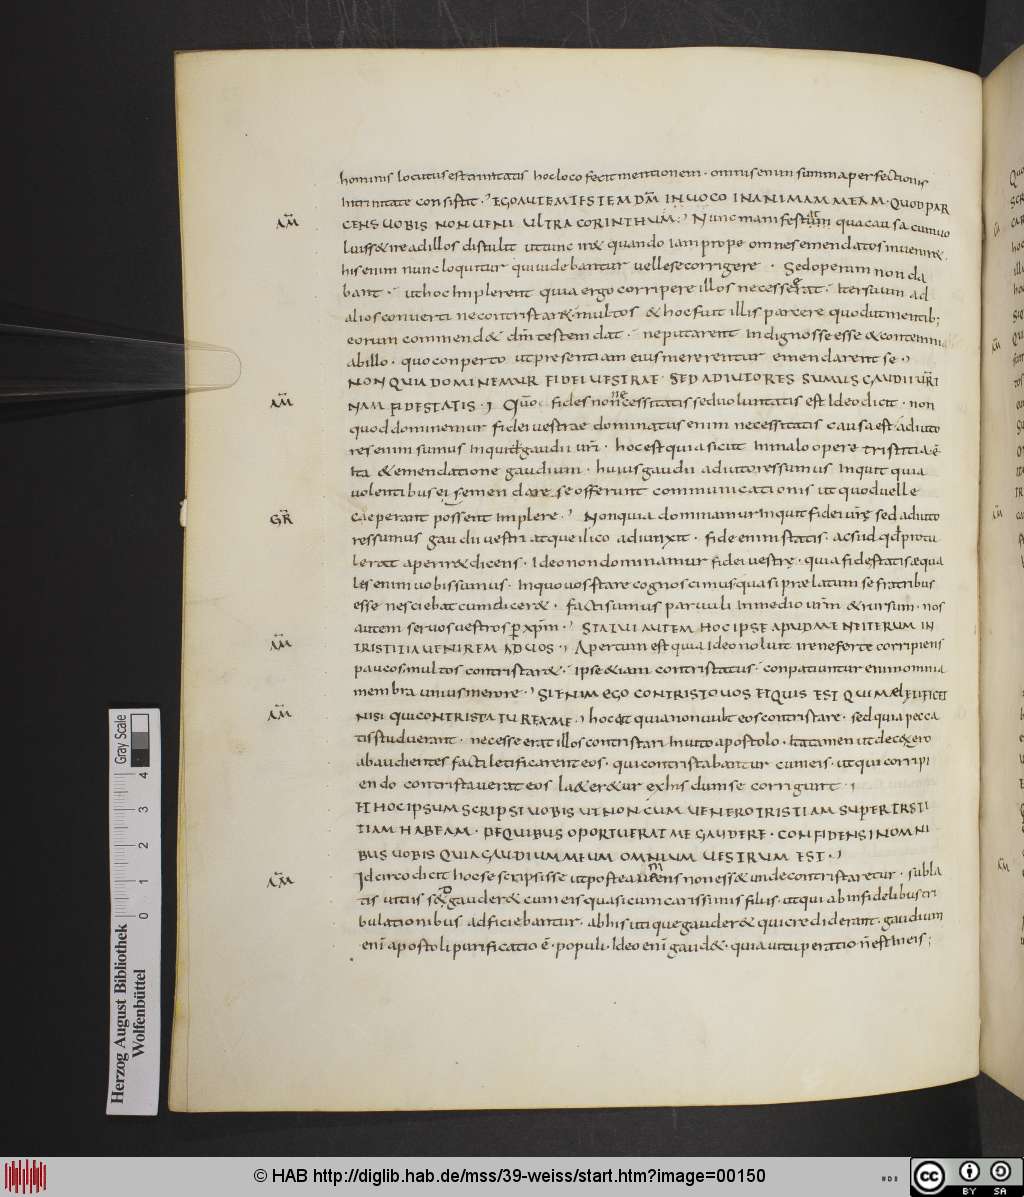 hominis locutus est trinitatis hoc loco fecit mentionem · omnis enim summa perfectionis
In trinitate consistit · EGO AUTEM TESTEM DM̄ INUOCO IN ANIMAM MEAM · QUOD PAR
AM̄ CENS UOBIS NON UENI ULTRA CORINTHUM · Nunc manifestum qua causa cum uo
luiss& ire ad illos distulit
his enim nunc loquitur qui uidebantur uelle se corrigere · Sed operam non da
bant · ut hoc Implerent quia ergo corripere illos necesse erat · Iter suum ad
alios conuerti ne contristar& multos & hoc fuit illis parcere quod ut mentib;
eorum commend& dm̄ testem dat · ne putarent Indignos se esse & contemni
ab illo · quo conperto ut presentiam eius mererentur emendarent se ·
NON QUIA DOMINEMUR FIDEI UESTRAE · SED ADIUTORES SUMUS GAUDII UR̄I
AM̄ NAM FIDE STATIS · Quō fides non necessitatis sed uoluntatis est Ideo dicit · non
quod dominemur fidei uestrae dominatus enim necessitatis causa est adiuto
res enim sumus Inquit gaudii uri · hoc est quia sicut In malo opere tristitia ē
Ita & emendatione gaudium · huius gaudii adiutores sumus Inquit quia
uolentibus ei semendare se offerunt communicationis ut quod uelle
GR̄ caeperant possent Implere · Non quia dominamur Inquit fidei urę sed adiuto
res sumus gaudii uestri atque ilico adiunxit · fide enim statis · ac si id qd protu
lerat aperir& dicens · Ideo non dominamur fidei uestrę · quia fide statis, equa
les enim uobis sumus · In quo uos stare cognoscimus quasi prælatum se fratribus
esse nesciebat cum dicer& · facti sumus paruuli In medio urm̄ & rursum · nos
autem seruos uestros p xpm̄ · STATUI AUTEM HOC IPSE APUD ME NE ITERUM IN
AM̄ TRISTITIA UENIREM AD UOS · Apertum est quia Ideo noluit ire ne forte corripiens
paucos multos contristar& · ipse &iam contristatus · conpatiuntur enim omnia
membra unius merore · SI ENIM EGO CONTRISTO UOS ET QUIS EST QUI ME LETIFICET
AM̄ NISI QUI CONTRISTATUR EX ME · hoc est quia non uult eos contristare · sed quia pecca
tis studuerant · necesse erat illos contristari Inuito apostolo · Ita tamen ut de c&ero
ab audientes facti letificarent eos · qui contristabantur cum eis · ut qui corripi
endo contristauerat eos la&er&ur ex his dum se corrigunt ·
ET HOC IPSUM SCRIPSI UOBIS UT NON CUM UENERO TRISTIAM SUPER TRISTI
TIAM HABEAM · DE QUIBUS OPORTUERAT ME GAUDERE · CONFIDENS IN OMNI
BUS UOBIS QUIA GAUDIUM MEUM OMNIUM UESTRUM EST ·
AM̄ Idcirco dicit hoc se scripsisse ut postea ueniens non ess& unde contristaretur · subla
tis uitiis s& gauder& cum eis quasi cum carissimis filiis · ut qui ab infidelibus tri
bulationibus adficiebantur · ab his utique gauder& qui crediderant · gaudium
enī apostoli purificatio ē · populi · Ideo enī gaud& · quia uituperatio n̄ est In eis ;
Herzog August Bibliothek
Wolfenbüttel
0 1 2 3 4
Gray Scale
© HAB http://diglib.hab.de/mss/39-weiss/start.htm?image=00150
cc BY SA